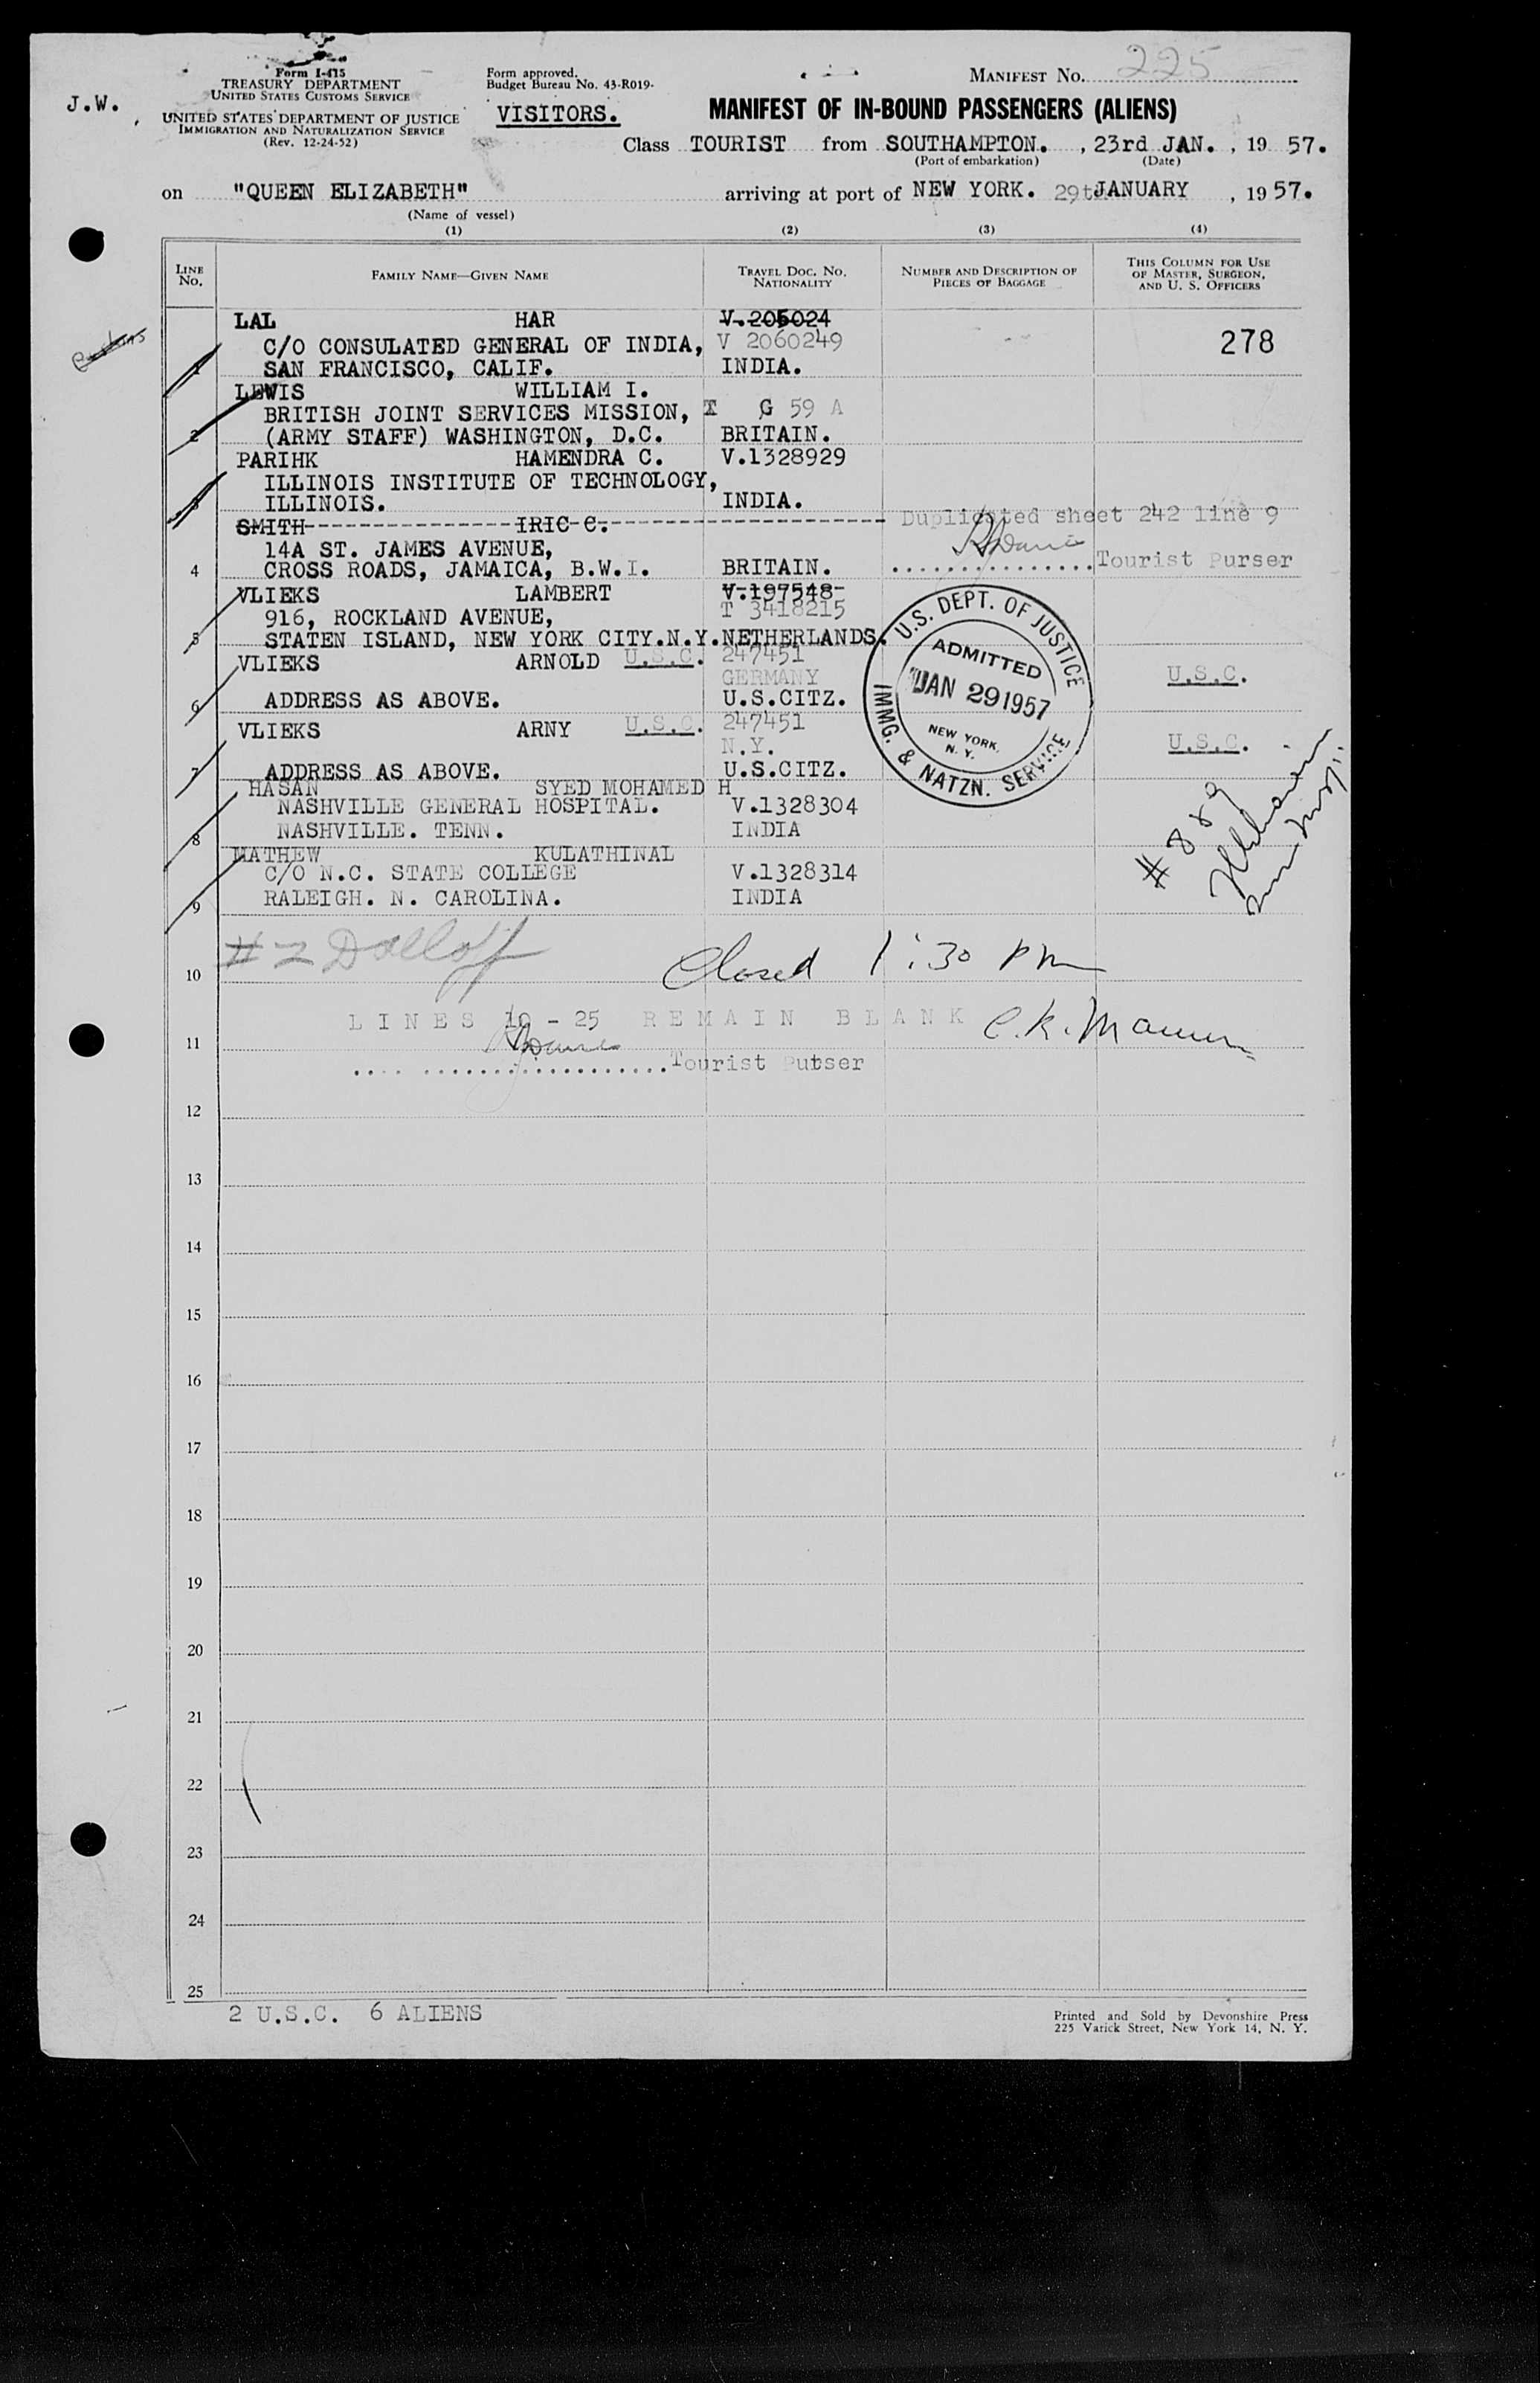 J.W.
Form I-415
TREASURY DEPARTMENT
UNITED STATES CUSTOMS SERVICE
UNITED STATES DEPARTMENT OF JUSTICE
IMMIGRATION AND NATURALIZATION SERVICE
(Rev. 12-24-52)
Form approved.
Budget Bureau No. 43-R019-
VISITORS.
MANIFEST NO. 225
MANIFEST OF IN-BOUND PASSENGERS (ALIENS)
Class TOURIST from SOUTHAMPTON. , 23rd JAN. , 19 57.
(Port of embarkation) (Date)
on "QUEEN ELIZABETH" arriving at port of NEW YORK. 29tJANUARY , 19 57.
(Name of vessel)
(1) (2) (3) (4)
LINE NO. FAMILY NAME—GIVEN NAME TRAVEL DOC. NO. NATIONALITY NUMBER AND DESCRIPTION OF PIECES OF BAGGAGE THIS COLUMN FOR USE OF MASTER, SURGEON, AND U. S. OFFICERS
LAL HAR V.205024
C/O CONSULATED GENERAL OF INDIA, V 2060249 278
1 SAN FRANCISCO, CALIF. INDIA.
LEWIS WILLIAM I.
BRITISH JOINT SERVICES MISSION, G 59 A
2 (ARMY STAFF) WASHINGTON, D.C. BRITAIN.
PARIHK HAMENDRA C. V.1328929
ILLINOIS INSTITUTE OF TECHNOLOGY,
3 ILLINOIS. INDIA.
SMITH IRIC C. Duplicated sheet 242 line 9
14A ST. JAMES AVENUE,
4 CROSS ROADS, JAMAICA, B.W.I. BRITAIN. ...............Tourist Purser
VLIEKS LAMBERT V.197548
916, ROCKLAND AVENUE, T 3418215
5 STATEN ISLAND, NEW YORK CITY.N.Y.NETHERLANDS.
VLIEKS ARNOLD U.S.C. 247451
GERMANY U.S.C.
6 ADDRESS AS ABOVE. U.S.CITZ.
VLIEKS ARNY U.S.C. 247451
N.Y. U.S.C.
7 ADDRESS AS ABOVE. U.S.CITZ.
U.S. DEPT. OF JUSTICE
ADMITTED
JAN 29 1957
NEW YORK,
N. Y.
IMMG. & NATZN. SERVICE
HASAN SYED MOHAMED H
NASHVILLE GENERAL HOSPITAL. V.1328304
8 NASHVILLE. TENN. INDIA
MATHEW KULATHINAL
C/O N.C. STATE COLLEGE V.1328314
9 RALEIGH. N. CAROLINA. INDIA
# 889
# 2 Dolloff
10 Closed 1:30 PM
LINES 10 - 25 REMAIN BLANK C.K.
11
....................Tourist Purser
12
13
14
15
16
17
18
19
20
21
22
23
24
25
2 U.S.C. 6 ALIENS
Printed and Sold by Devonshire Press
225 Varick Street, New York 14, N. Y.